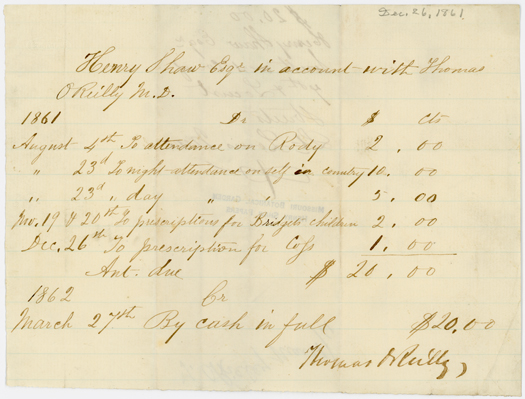 Dec. 26, 1861
Henry Shaw Esqr in account with Thomas
O'Reilly M.D.
1861 Dr $ cts
August 4th To attendance on Rody 2.00
" 23d To night attendance on self in country 10.00
" 23d " day " " 5.00
Nov. 19 & 20th To prescriptions for Bridgets children 2.00
Dec. 26th To prescription for 1.00
Amt. due $ 20.00
1862 Cr
March 27th By cash in full $20.00
Thomas O'Reilly